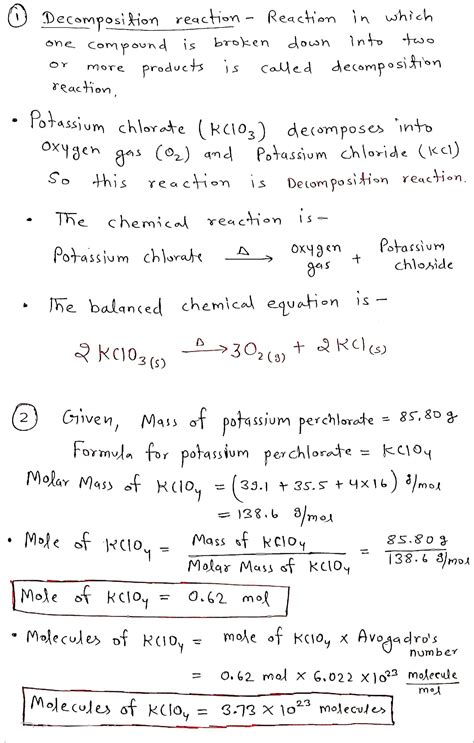 ① Decomposition reaction - Reaction in which
one compound is broken down into two
or more products is called decomposition
reaction.
• Potassium chlorate (KClO3) decomposes into
oxygen gas (O2) and Potassium chloride (KCl)
So this reaction is Decomposition reaction.
• The chemical reaction is -
Potassium chlorate Δ→ oxygen gas + Potassium chloride
• The balanced chemical equation is -
2 KClO3(s) Δ→ 3O2(g) + 2 KCl(s)
② Given, Mass of potassium perchlorate = 85.80 g
Formula for potassium perchlorate = KClO4
Molar Mass of KClO4 = (39.1 + 35.5 + 4×16) g/mol
= 138.6 g/mol
• Mole of KClO4 = Mass of KClO4 / Molar Mass of KClO4 = 85.80 g / 138.6 g/mol
Mole of KClO4 = 0.62 mol
• Molecules of KClO4 = mole of KClO4 × Avogadro's number
= 0.62 mol × 6.022 × 10^23 molecule/mol
Molecules of KClO4 = 3.73 × 10^23 molecules